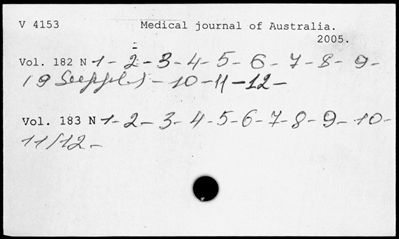 V 4153 Medical journal of Australia.
2005.
Vol. 182 N 1- 2- 3- 4- 5- 6- 7- 8- 9-
(9 Suppl.) - 10-11-12-
Vol. 183 N 1- 2- 3- 4-5-6-7-8-9-10-
11/12-